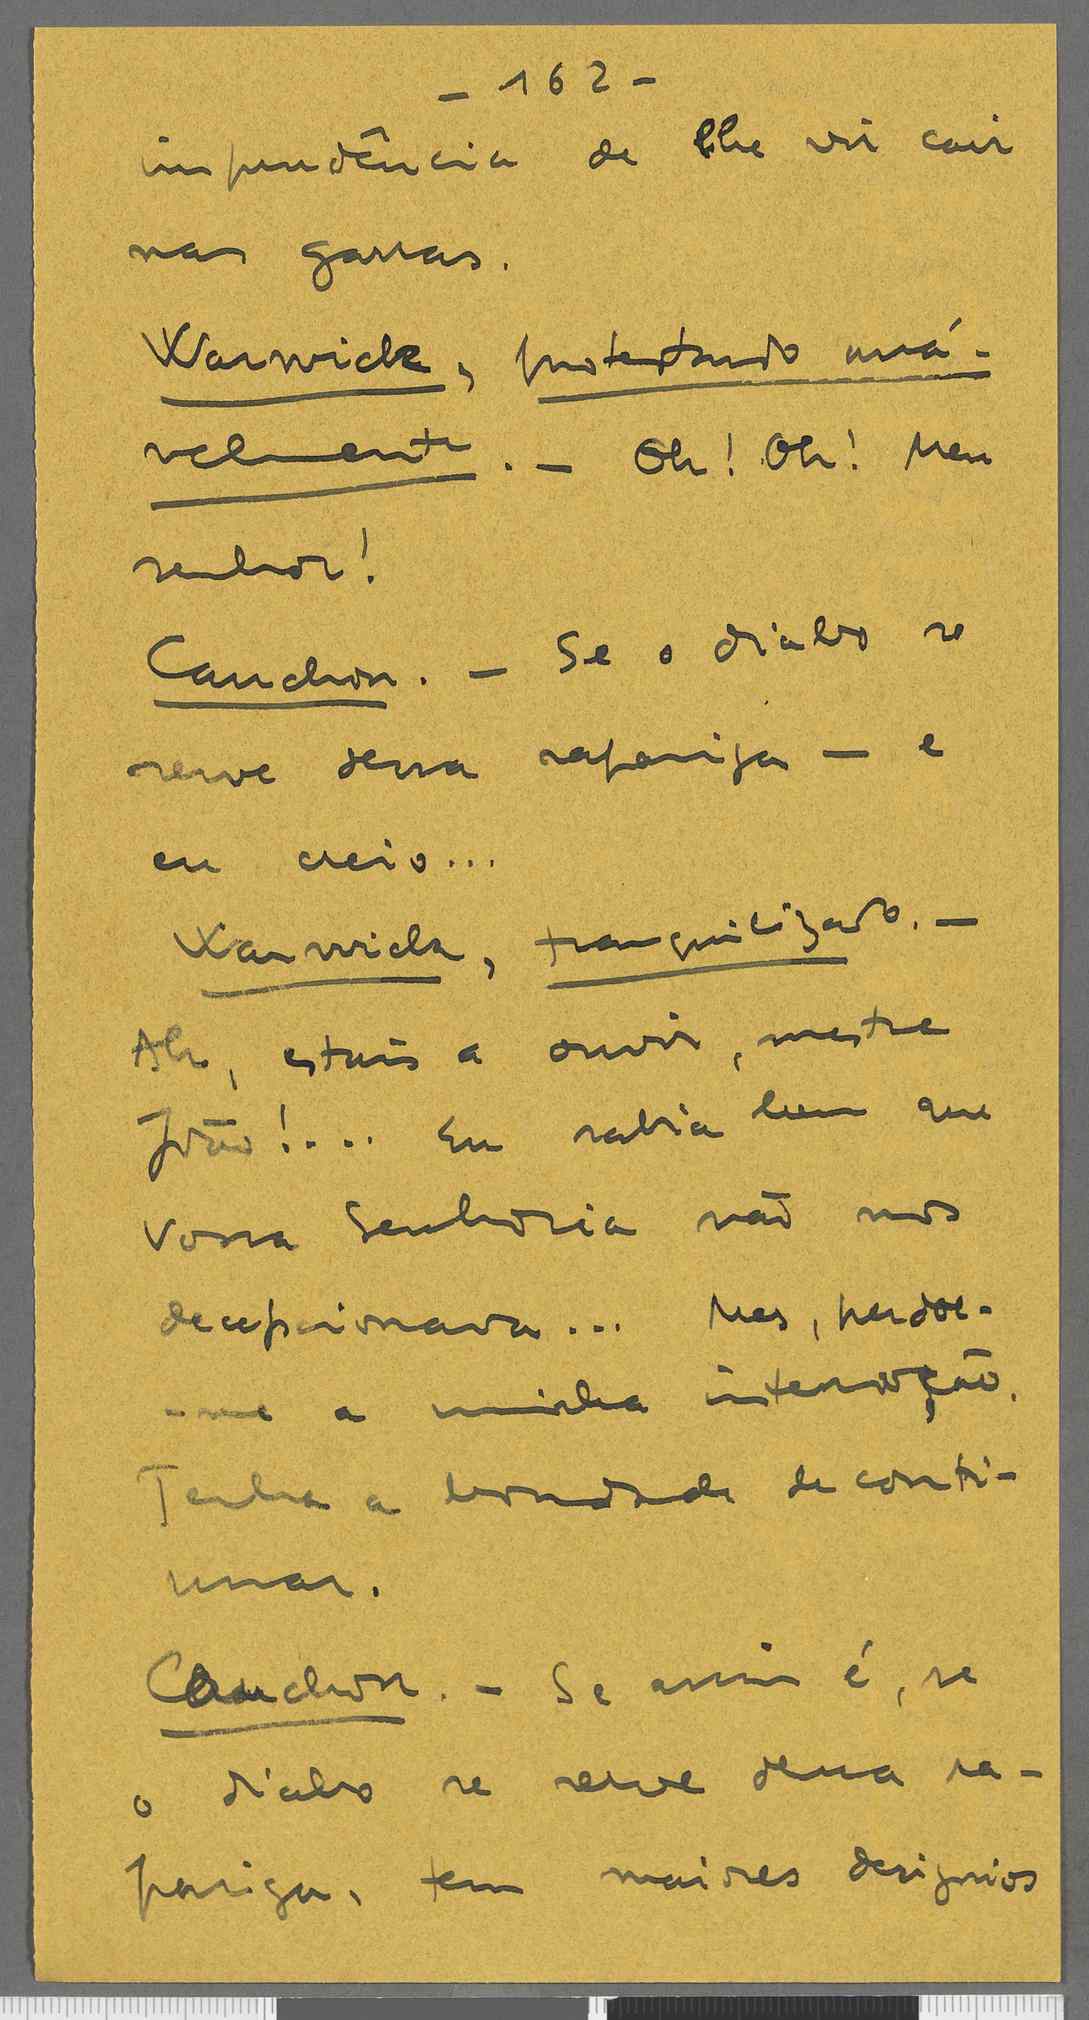 - 162 -
imprudência de lhe vir cair
nas garras.
Warwick, protestando amá-
velmente. - Oh! Oh! Meu
senhor!
Cauchon. - Se o diabo se
serve dessa rapariga - e
eu creio...
Warwick, tranquilizado. -
Ah, estais a ouvir, mestre
João!.... Eu sabia bem que
Vossa Senhoria não nos
decepcionava... Mas, perdoe-
-me a minha interrupção.
Tenha a bondade de conti-
nuar.
Cauchon. - Se assim é, se
o diabo se serve dessa ra-
pariga, tem maiores desígnios